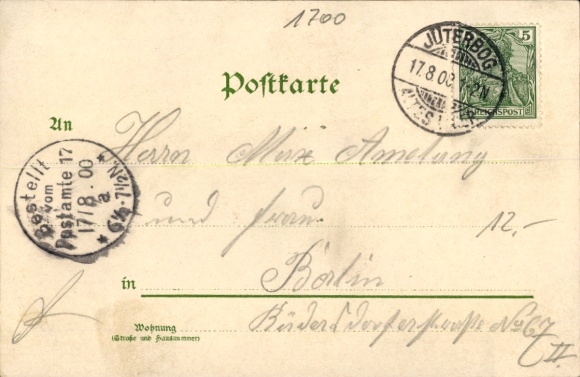 1700
5
REICHSPOST
JÜTERBOG
17.8.00
ALTES LAGER
Postkarte
An
Herrn Max Amelung
und Frau.
12,-
Bestellt
vom
Postamte 17
17/8.00
a
6½-7½N.
in
Berlin
Wohnung
(Straße und Hausnummer)
Rüdersdorferstraße No 67
II